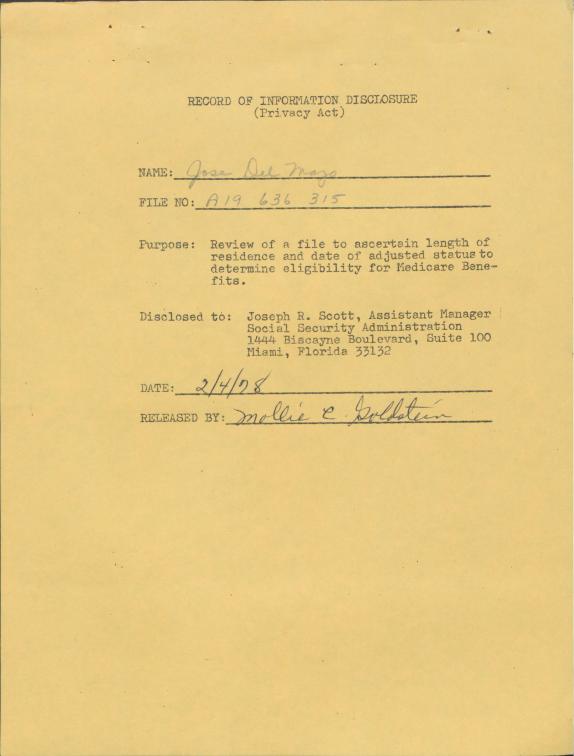 RECORD OF INFORMATION DISCLOSURE
(Privacy Act)
NAME: Jose Del Mazo
FILE NO: A19 636 315
Purpose: Review of a file to ascertain length of
residence and date of adjusted status to
determine eligibility for Medicare Bene-
fits.
Disclosed to: Joseph R. Scott, Assistant Manager
Social Security Administration
1444 Biscayne Boulevard, Suite 100
Miami, Florida 33132
DATE: 2/4/78
RELEASED BY: Mollie C. Goldstein